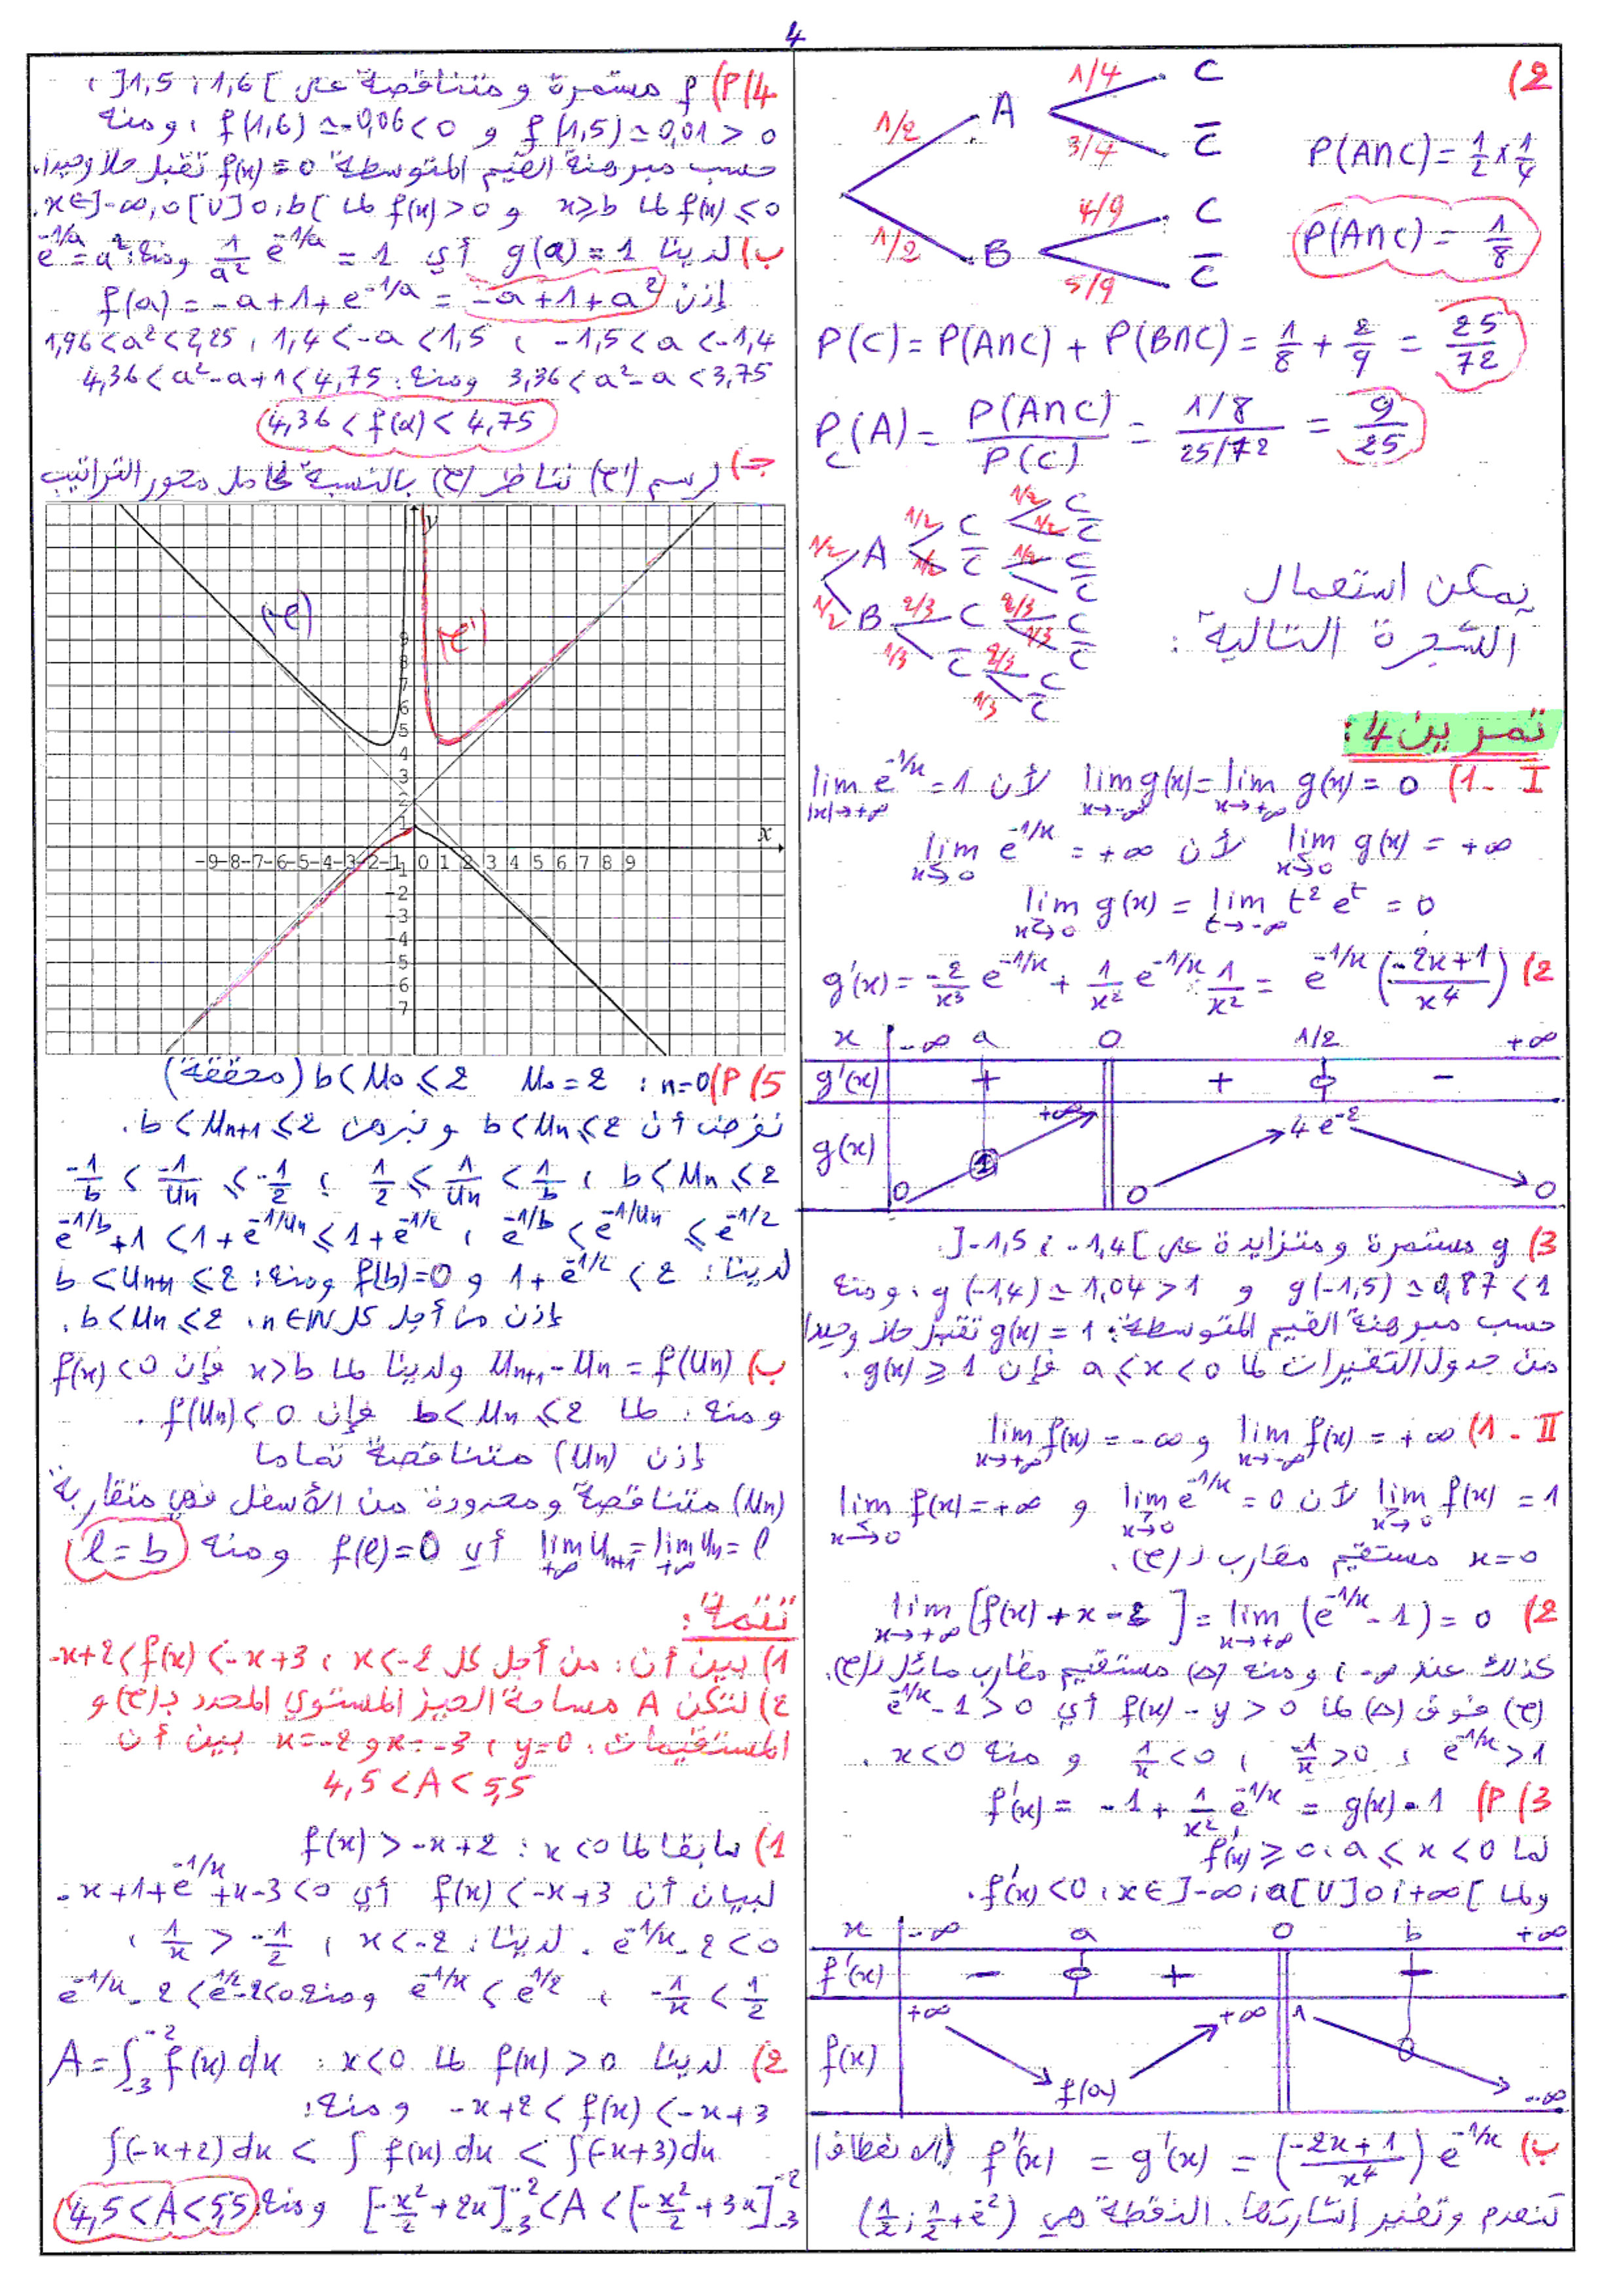 4
2)
1/2 A 1/4 C
3/4 C̅
1/2 B 4/9 C
5/9 C̅
P(A∩C) = 1/2 × 1/4
P(A∩C) = 1/8
P(C) = P(A∩C) + P(B∩C) = 1/8 + 2/9 = 25/72
P_C(A) = P(A∩C)/P(C) = (1/8)/(25/72) = 9/25
يمكن استعمال
الشجرة التالية :
1/2 A 1/2 C 1/2 C
1/2 C̅
1/2 C̅ 1/2 C
C̅
1/2 B 2/3 C 2/3 C
1/3 C̅
1/3 C̅ 2/3 C
1/3 C̅
تمرين 4 :
I - 1) lim_{x→-∞} g(x) = lim_{x→+∞} g(x) = 0 لأن lim_{|x|→+∞} e^{-1/x} = 1
lim_{x→0<} g(x) = +∞ لأن lim_{x→0<} e^{-1/x} = +∞
lim_{x→0>} g(x) = lim_{t→-∞} t² e^t = 0
2) g'(x) = -2/x³ e^{-1/x} + 1/x² e^{-1/x} · 1/x² = e^{-1/x} ((-2x+1)/x⁴)
x -∞ a 0 1/2 +∞
g'(x) + + 0 -
g(x) 0 1 +∞ 0 4e^{-2} 0
3) g مستمرة ومتزايدة على ]-1,5 ; -1,4[
g(-1,5) ≃ 0,87 < 1 و g(-1,4) ≃ 1,04 > 1 ، ومنه
حسب مبرهنة القيم المتوسطة : g(x) = 1 تقبل حلا وحيدا
من جدول التغيرات لما a ≤ x < 0 فإن g(x) ≥ 1 .
II - 1) lim_{x→-∞} f(x) = +∞ و lim_{x→+∞} f(x) = -∞
lim_{x→0>} f(x) = 1 لأن lim_{x→0>} e^{-1/x} = 0 و lim_{x→0<} f(x) = +∞
x = 0 مستقيم مقارب لـ (C) .
2) lim_{x→+∞} [f(x) + x - 2] = lim_{x→+∞} (e^{-1/x} - 1) = 0
كذلك عند -∞ ، ومنه (Δ) مستقيم مقارب مائل لـ (C).
(C) فوق (Δ) لما f(x) - y > 0 أي e^{-1/x} - 1 > 0
e^{-1/x} > 1 ، -1/x > 0 ، 1/x < 0 ومنه x < 0 .
3) أ) f'(x) = -1 + 1/x² e^{-1/x} = g(x) - 1
لما a ≤ x < 0 ، f'(x) ≥ 0
ولما x ∈ ]-∞ ; a[ ∪ ]0 ; +∞[ ، f'(x) < 0 .
x -∞ a 0 b +∞
f'(x) - 0 + -
f(x) +∞ f(a) +∞ 1 0 -∞
ب) f''(x) = g'(x) = ((-2x+1)/x⁴) e^{-1/x} (الانعطاف)
تنعدم وتغير إشارتها. النقطة هي (1/2 ; 1/2 + e^{-2})
4) أ) f مستمرة ومتناقصة على ]1,5 ; 1,6[ ،
f(1,5) ≃ 0,01 > 0 و f(1,6) ≃ -0,06 < 0 ، ومنه
حسب مبرهنة القيم المتوسطة f(x) = 0 تقبل حلا وحيدا.
f(x) ≤ 0 لما x ≥ b و f(x) > 0 لما x ∈ ]-∞, 0[ ∪ ]0 ; b[ .
ب) لدينا g(a) = 1 أي 1/a² e^{-1/a} = 1 ومنه : e^{-1/a} = a²
إذن f(a) = -a + 1 + e^{-1/a} = -a + 1 + a²
-1,5 < a < -1,4 ، 1,4 < -a < 1,5 ، 1,96 < a² < 2,25
3,36 < a² - a < 3,75 ومنه : 4,36 < a² - a + 1 < 4,75
4,36 < f(a) < 4,75
جـ) لرسم (C') نناظر (C) بالنسبة لحامل محور التراتيب
y
(C)
(C')
9
8
7
6
5
4
3
2
1
x
-9 -8 -7 -6 -5 -4 -3 -2 -1 0 1 2 3 4 5 6 7 8 9
-1
-2
-3
-4
-5
-6
-7
5) أ) n = 0 : U₀ = 2 b < U₀ ≤ 2 (محققة)
نفرض أن b < Uₙ ≤ 2 ونبرهن b < Uₙ₊₁ ≤ 2 .
b < Uₙ ≤ 2 ، 1/2 ≤ 1/Uₙ < 1/b ، -1/b < -1/Uₙ ≤ -1/2
e^{-1/b} < e^{-1/Uₙ} ≤ e^{-1/2} ، e^{-1/b} + 1 < 1 + e^{-1/Uₙ} ≤ 1 + e^{-1/2}
لدينا : 1 + e^{-1/2} < 2 و f(b) = 0 ومنه : b < Uₙ₊₁ ≤ 2
إذن من أجل كل n ∈ ℕ ، b < Uₙ ≤ 2 .
ب) Uₙ₊₁ - Uₙ = f(Uₙ) ولدينا لما x > b فإن f(x) < 0
ومنه : لما b < Uₙ ≤ 2 فإن f(Uₙ) < 0 .
إذن (Uₙ) متناقصة تماما
(Uₙ) متناقصة ومحدودة من الأسفل فهي متقاربة
lim_{+∞} Uₙ₊₁ = lim_{+∞} Uₙ = ℓ أي f(ℓ) = 0 ومنه ℓ = b
تتمة :
1) بين أن : من أجل كل x < -2 ، -x+2 < f(x) < -x+3
2) لتكن A مساحة الحيز المستوي المحدد بـ (C) و
المستقيمات : y=0 ، x=-3 و x=-2 بين أن
4,5 < A < 5,5
1) سابقا لما x < 0 : f(x) > -x+2
لبيان أن f(x) < -x+3 أي -x+1+e^{-1/x}+x-3 < 0
e^{-1/x} - 2 < 0 . لدينا : x < -2 ، 1/x > -1/2 ،
-1/x < 1/2 ، e^{-1/x} < e^{1/2} ومنه e^{-1/x} - 2 < e^{1/2} - 2 < 0
2) لدينا f(x) > 0 لما x < 0 : A = ∫_{-3}^{-2} f(x) dx
-x+2 < f(x) < -x+3 ومنه :
∫(-x+2) dx < ∫ f(x) dx < ∫(-x+3) dx
[-x²/2 + 2x]_{-3}^{-2} < A < [-x²/2 + 3x]_{-3}^{-2} ومنه : 4,5 < A < 5,5